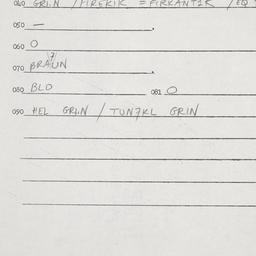 040 GRI.N / FIREKIK = FIRKANTIK / EQ
050 —
060 O
070 BRAUN
080 BLO 081 O
090 HEL GRIIN / TUNZKL GRIN